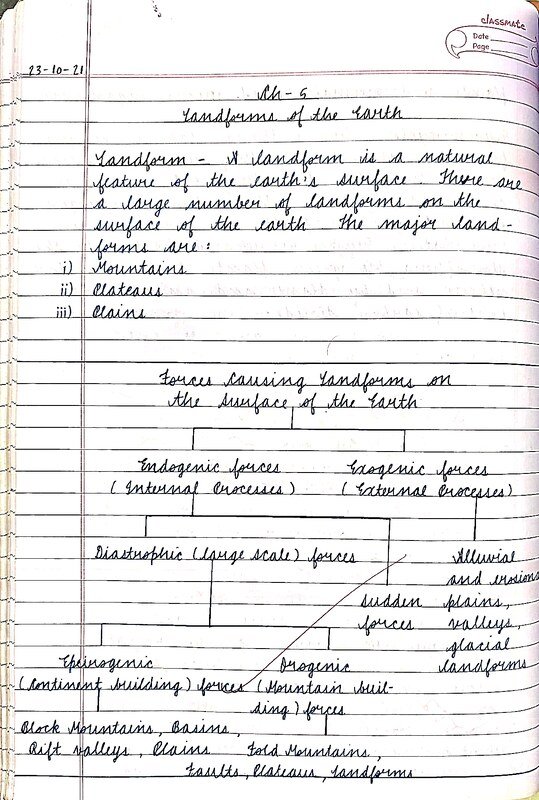 classmate
Date
Page
23-10-21
Ch - 5
Landforms of the Earth
Landform - A landform is a natural
feature of the earth's surface. There are
a large number of landforms on the
surface of the earth. The major land-
forms are :
i) Mountains
ii) Plateaus
iii) Plains
Forces Causing Landforms on
the Surface of the Earth
Endogenic forces Exogenic forces
(Internal Processes) (External Processes)
Diastrophic (large scale) forces
sudden
forces
Alluvial
and erosion
plains,
valleys,
glacial
landforms
Epeirogenic Orogenic
(Continent building) forces (Mountain buil-
ding) forces
Block Mountains, Basins,
Rift valleys, Plains Fold Mountains,
Faults, Plateaus, landforms